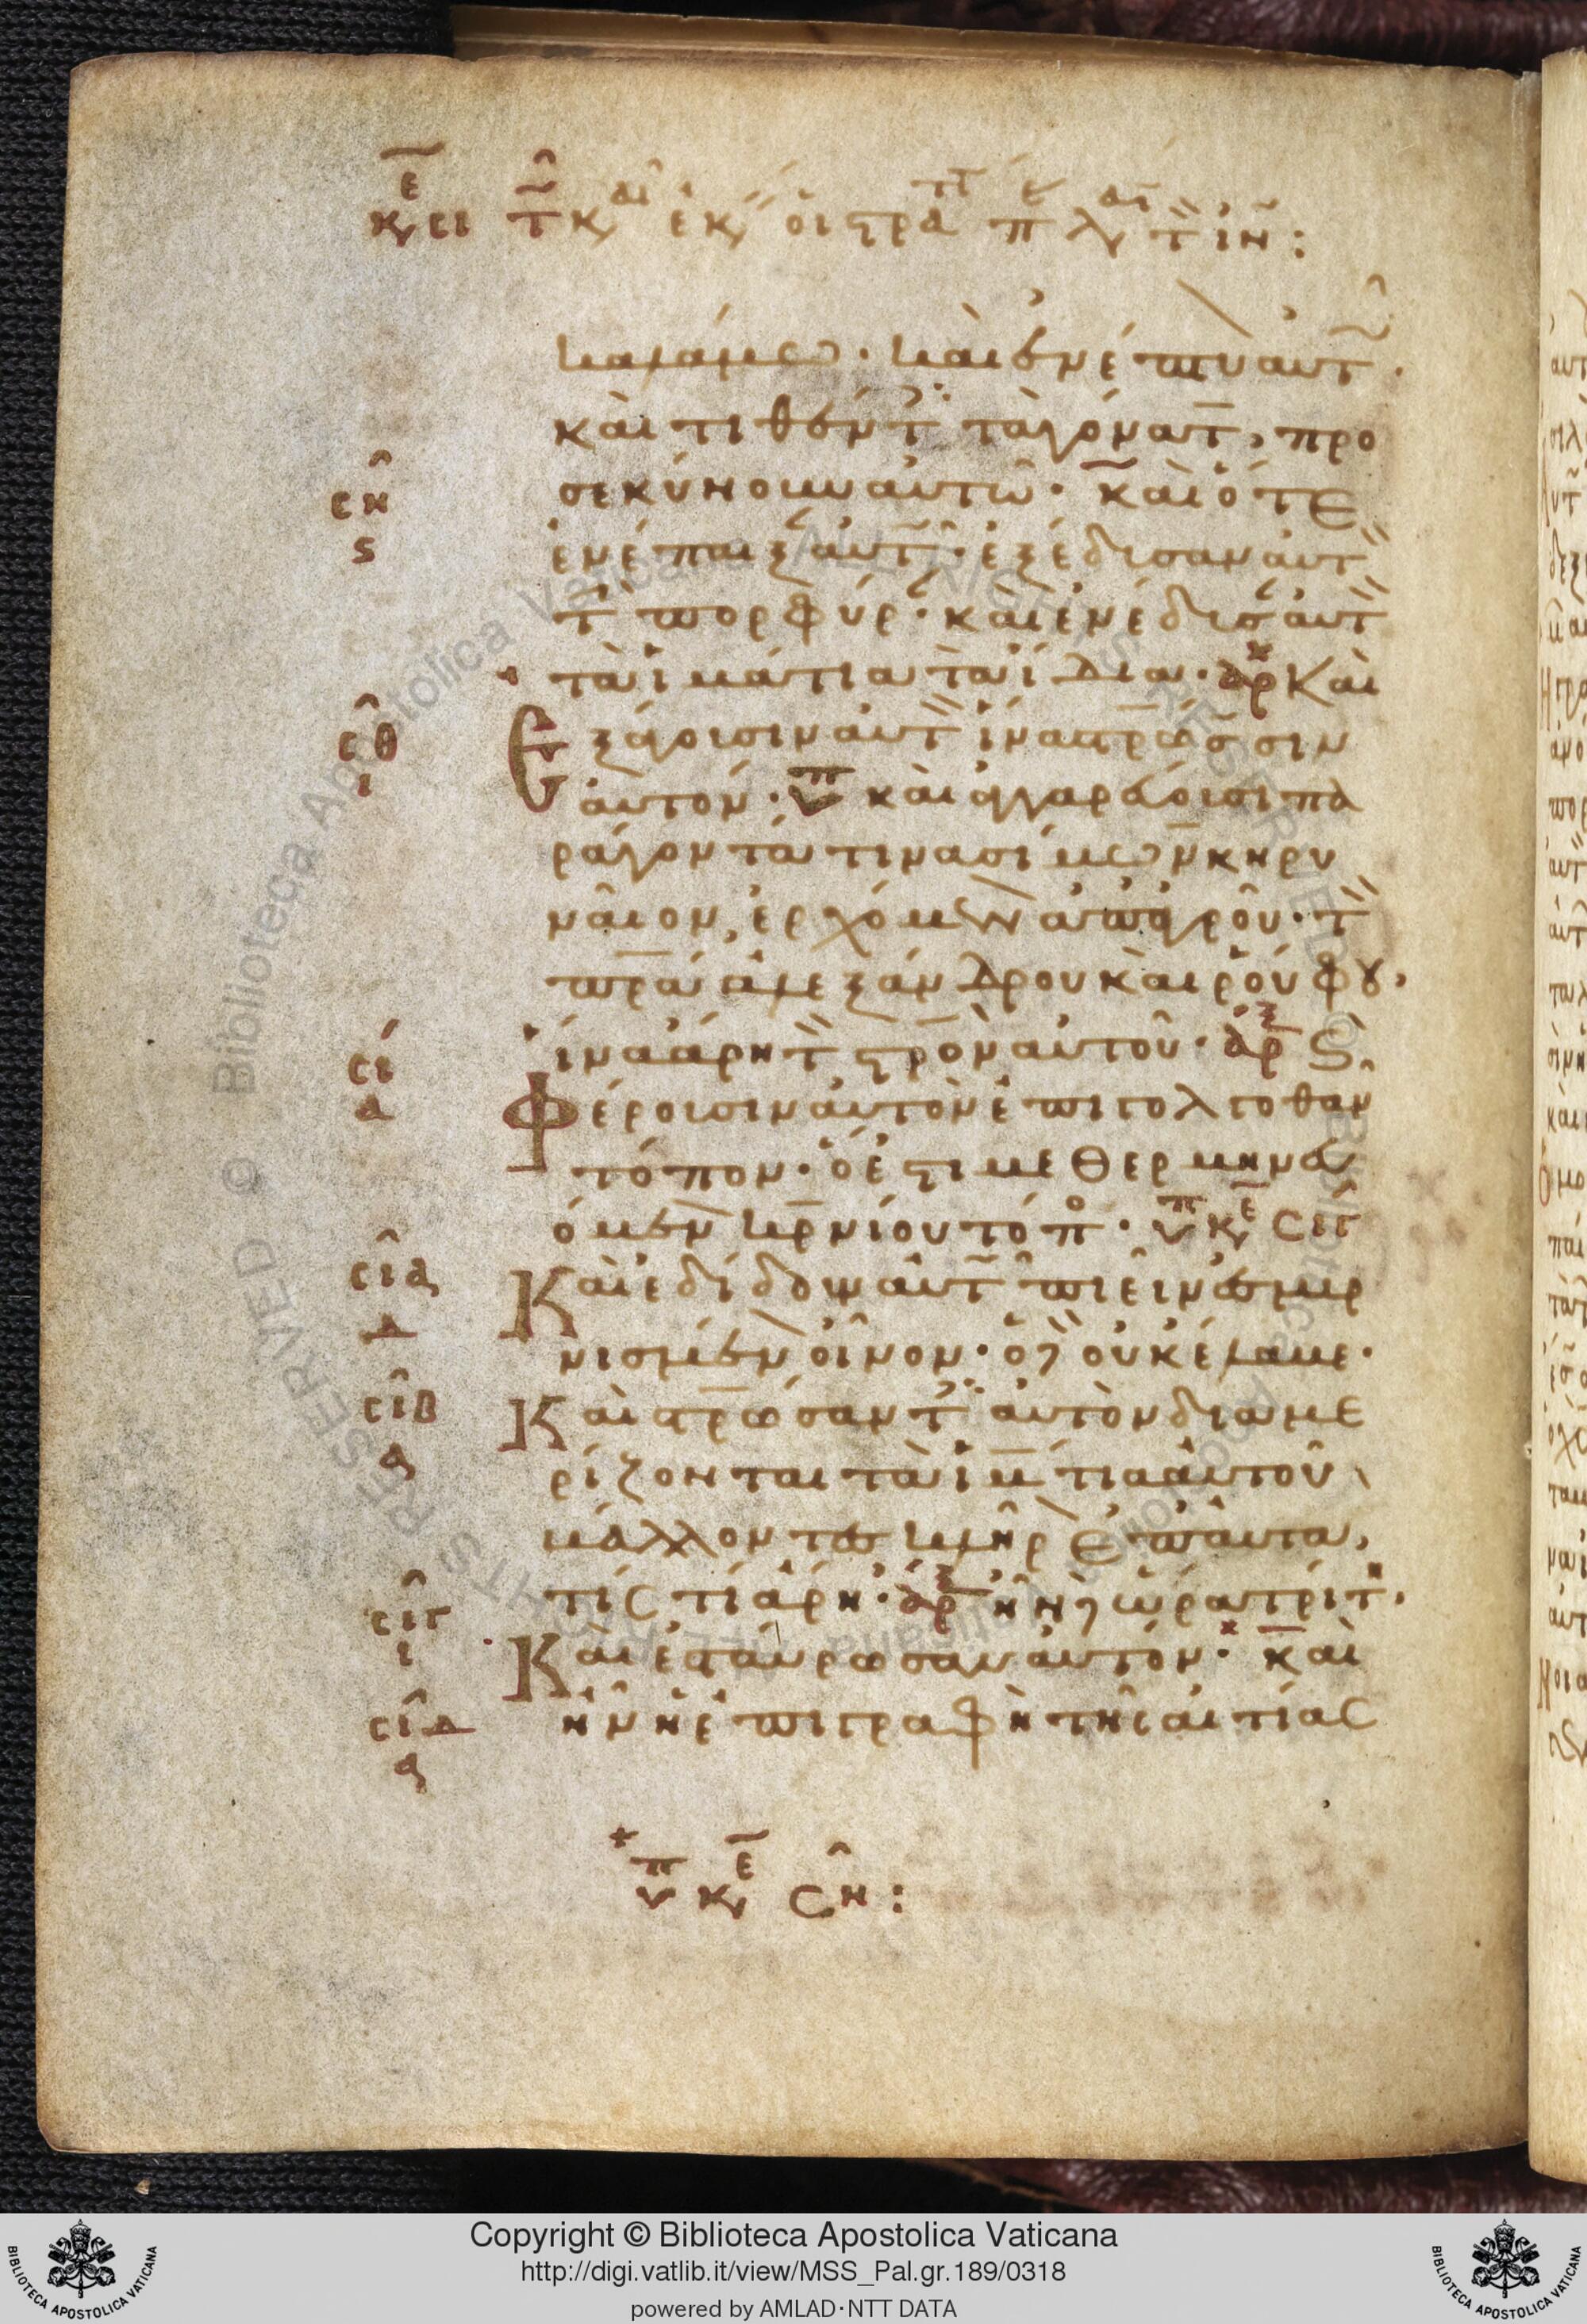 καλάμω· καὶ ἐνέπτυον αὐτ
καὶ τιθέντ τὰ γόνατ, προ
σεκύνουν αὐτῶ· καὶ ὅτε
ἐνέπαιξ αὐτ· ἐξέδυσαν αὐτ
τ πορφύρ· καὶ ἐνέδυσ αὐτ
τὰ ἱμάτια τὰ ἴδια· ἀρ Καὶ
Ἐξάγουσιν αὐτ ἵνα σταυρώσσιν
αὐτόν· καὶ ἀγγαρεύουσι πα
ράγοντά τινα σίμωνα κυρη
ναῖον, ἐρχόμενον ἀπ' ἀγροῦ· τ
πρα ἀλεξάνδρου καὶ ῥούφου,
ἵνα ἄρη τ στρον αὐτοῦ· ἀρ
Φέρουσιν αὐτὸν ἐπὶ γολγοθαν
τόπον· ὅ ἐστι μεθερμηνευ
όμενον κρανίου τόπ· κε σιγ
Καὶ ἐδίδουν αὐτ πιεῖν ἐσμυρ
νισμένον οἶνον· ὁ δὲ οὐκ ἔλαβε·
Καὶ σταυρώσαντ αὐτὸν διαμε
ρίζονται τὰ ἱμάτια αὐτοῦ
βάλλοντες κλῆρ ἐπ' αὐτά,
τίς τί ἄρη· ἀρ ἦν δὲ ὥρα τρίτη,
Καὶ ἐσταύρωσαν αὐτόν· καὶ
ἦν ἡ ἐπιγραφὴ τῆς αἰτίας
ση
ς
σθ
ι
σι
α
σια
δ
σιβ
α
σιγ
ι
σιδ
α
Copyright © Biblioteca Apostolica Vaticana
http://digi.vatlib.it/view/MSS_Pal.gr.189/0318
powered by AMLAD·NTT DATA
BIBLIOTECA APOSTOLICA VATICANA
BIBLIOTECA APOSTOLICA VATICANA